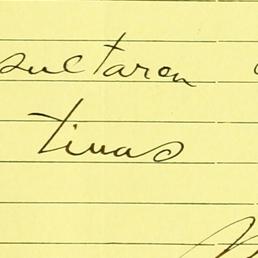 sultaron
tivas